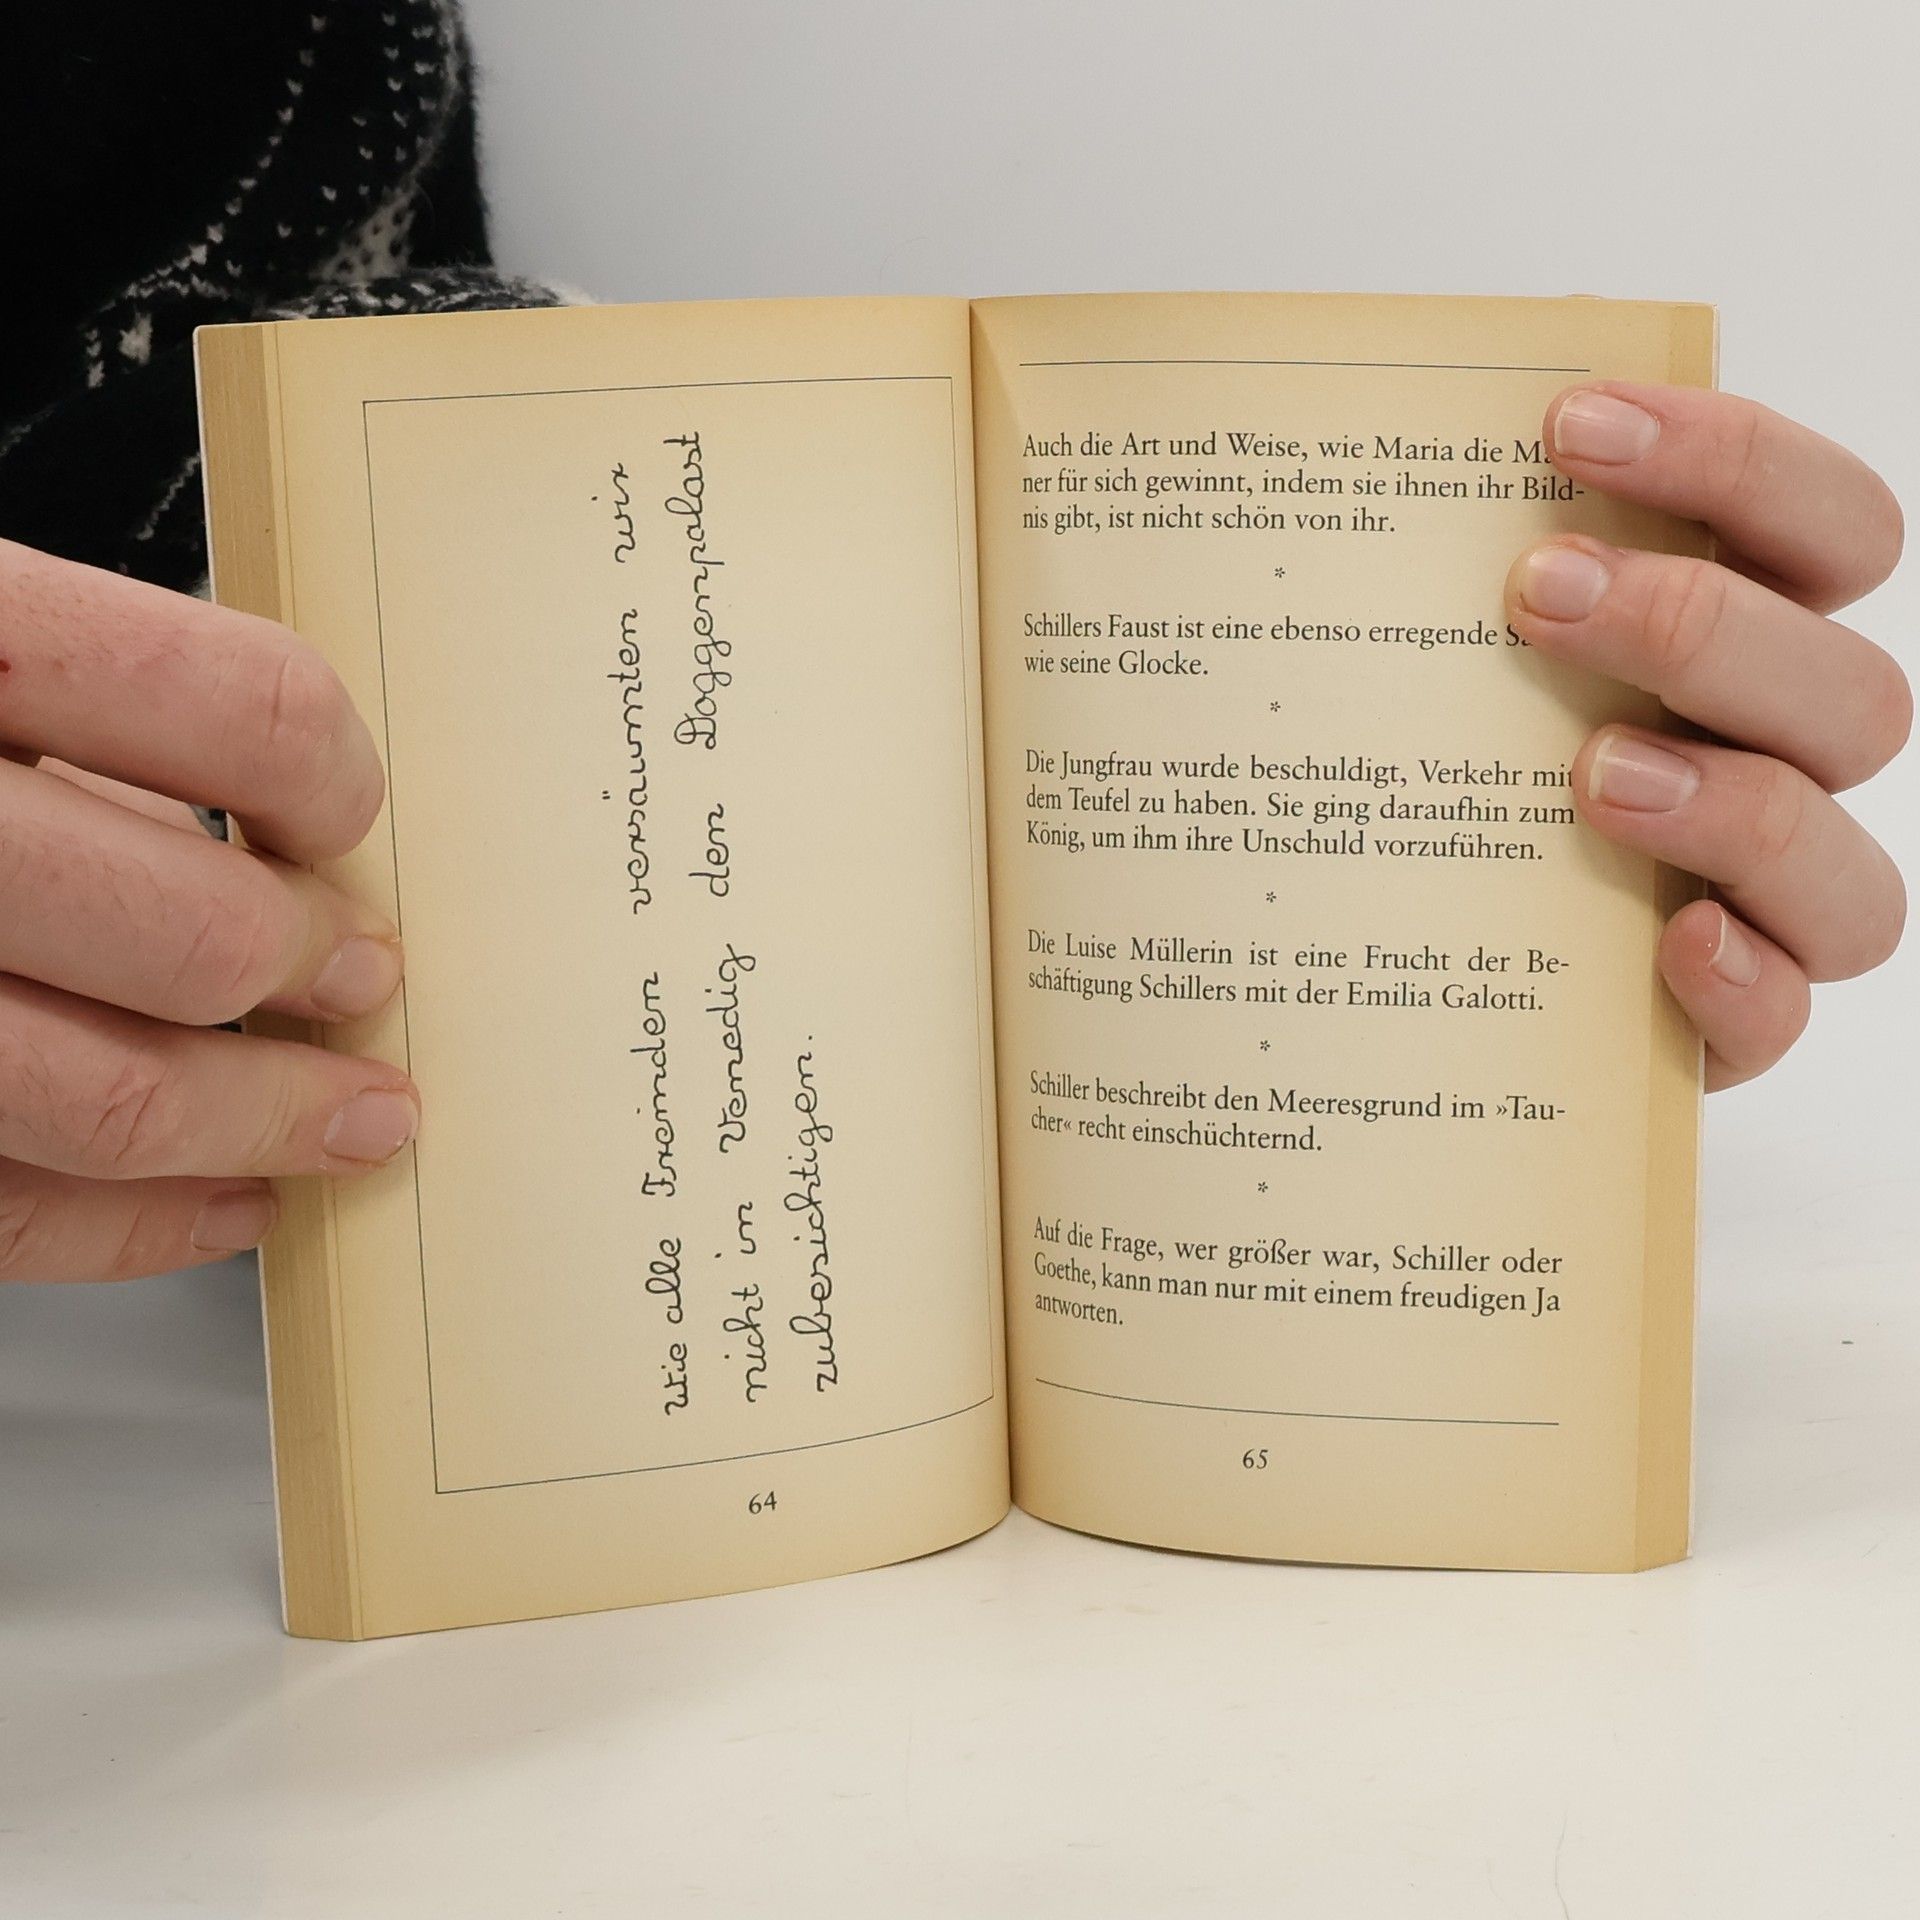 Wie alle Fremden versäumten wir
nicht in Venedig den Doggenpalast
zubesichtigen.
64
Auch die Art und Weise, wie Maria die
ner für sich gewinnt, indem sie ihnen ihr Bild-
nis gibt, ist nicht schön von ihr.
*
Schillers Faust ist eine ebenso erregende
wie seine Glocke.
*
Die Jungfrau wurde beschuldigt, Verkehr mit
dem Teufel zu haben. Sie ging daraufhin zum
König, um ihm ihre Unschuld vorzuführen.
*
Die Luise Müllerin ist eine Frucht der Be-
schäftigung Schillers mit der Emilia Galotti.
*
Schiller beschreibt den Meeresgrund im »Tau-
cher« recht einschüchternd.
*
Auf die Frage, wer größer war, Schiller oder
Goethe, kann man nur mit einem freudigen Ja
antworten.
65